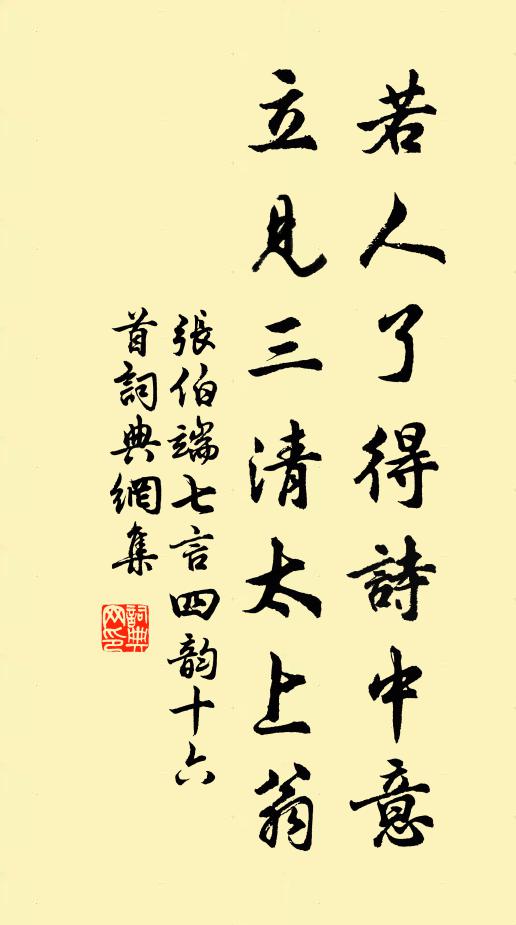 若人了得詩中意
立見三清太上翁
張伯端七言四韵十六
首詞典網集
詞典
网印